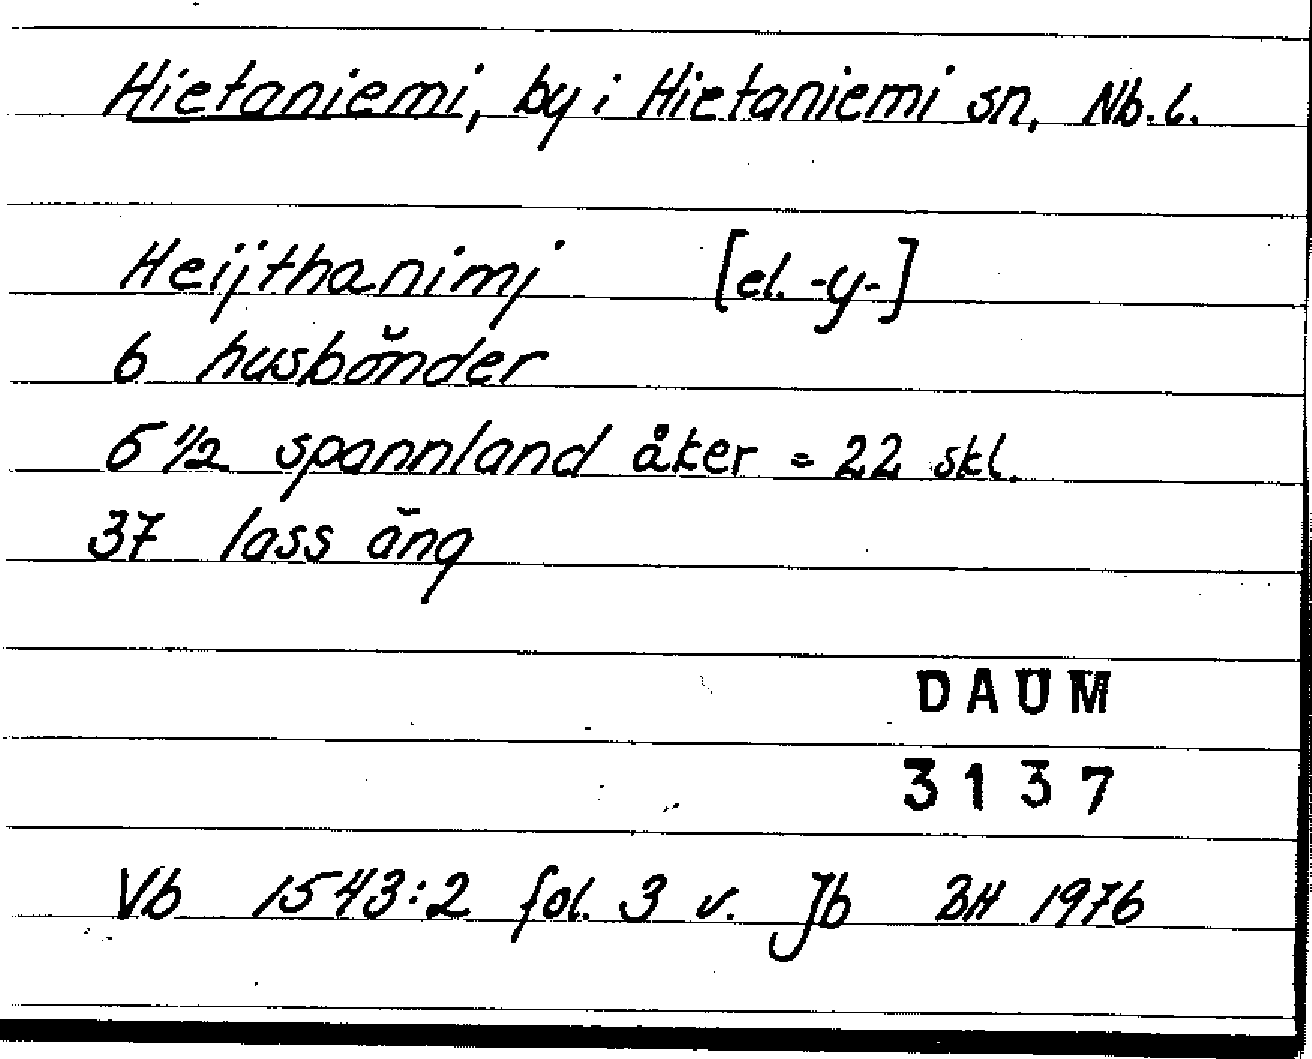 Hietaniemi, by i Hietaniemi sn, Nb.l.
Heijthanimj [el. -y-]
6 husbönder
5 1/2 spannland åker = 22 skl.
37 lass äng
DAUM
3137
Vb 1543:2 fol. 3 v. Jb BH 1976